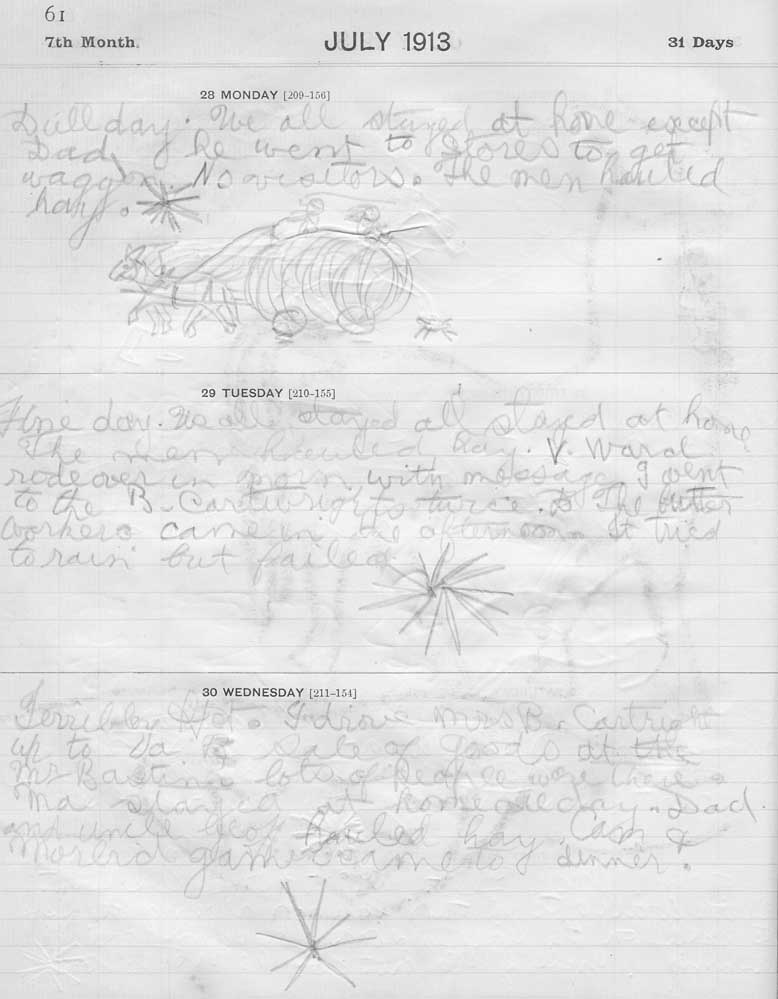 61
7th Month.
JULY 1913
31 Days
28 MONDAY [209-156]
Dull day. We all stayed at home except
Dad, he went to Stores to get
waggon. No visitors. The men hauled
hay.
29 TUESDAY [210-155]
Fine day. We all stayed all stayed at home
The men hauled hay. V. Ward
rode over in morn with message. I went
to the B. Cartwrights twice. The butter
workers came in the afternoon It tried
to rain but failed
30 WEDNESDAY [211-154]
Terribley Hot. I drove Mrs B. Cartright
up to a sale of goods at the
Mr lots of people were there.
Ma stayed at home all day. Dad
and uncle Geof hauled hay. Cash &
came to dinner.